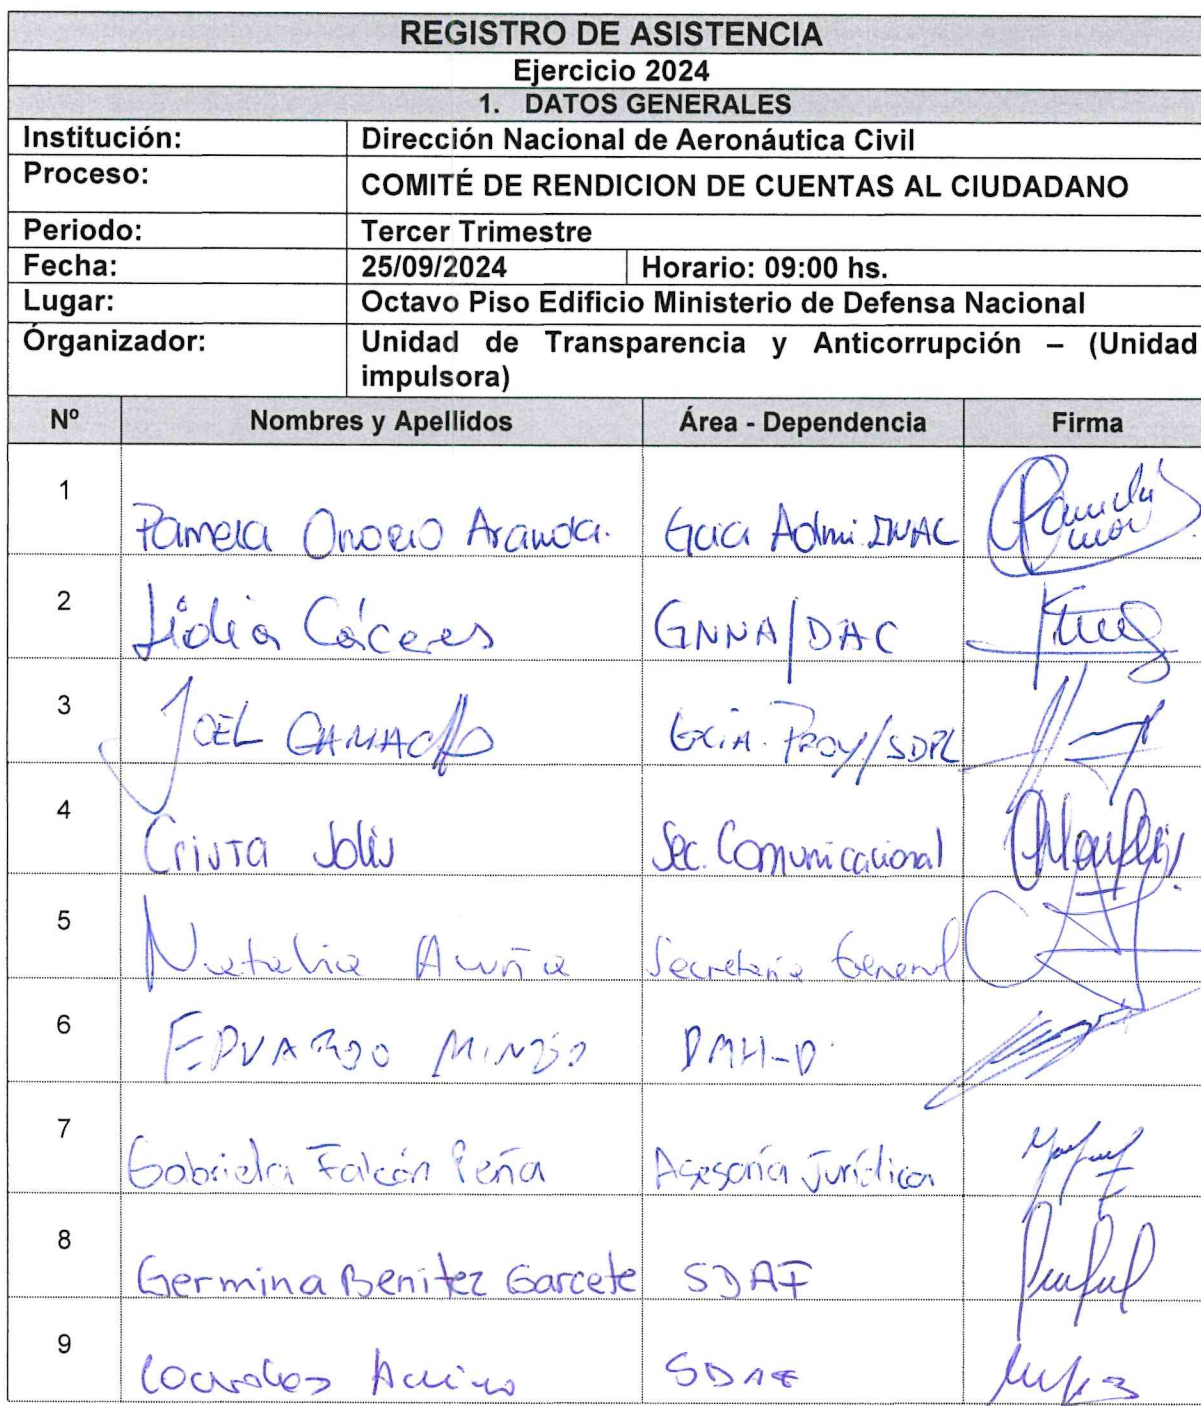 REGISTRO DE ASISTENCIA
Ejercicio 2024
1. DATOS GENERALES
Institución: Dirección Nacional de Aeronáutica Civil
Proceso: COMITÉ DE RENDICION DE CUENTAS AL CIUDADANO
Periodo: Tercer Trimestre
Fecha: 25/09/2024 Horario: 09:00 hs.
Lugar: Octavo Piso Edificio Ministerio de Defensa Nacional
Órganizador: Unidad de Transparencia y Anticorrupción – (Unidad
impulsora)
Nº Nombres y Apellidos Área - Dependencia Firma
1 Pamela Onorio Aranda. Gcia Admi INAC
2 Lidia Cáceres GNNA/DAC
3 JOEL CAMACHO Gcia. Proy/SDPL
4 Crista Solis Sec. Comunicacional
5 Natalia Acuña Secretaria General
6 EDUARDO DMH-D
7 Gabriela Falcón Peña Asesoría Jurídica
8 Germina Benitez Garcete SDAF
9 Lourdes SDAF